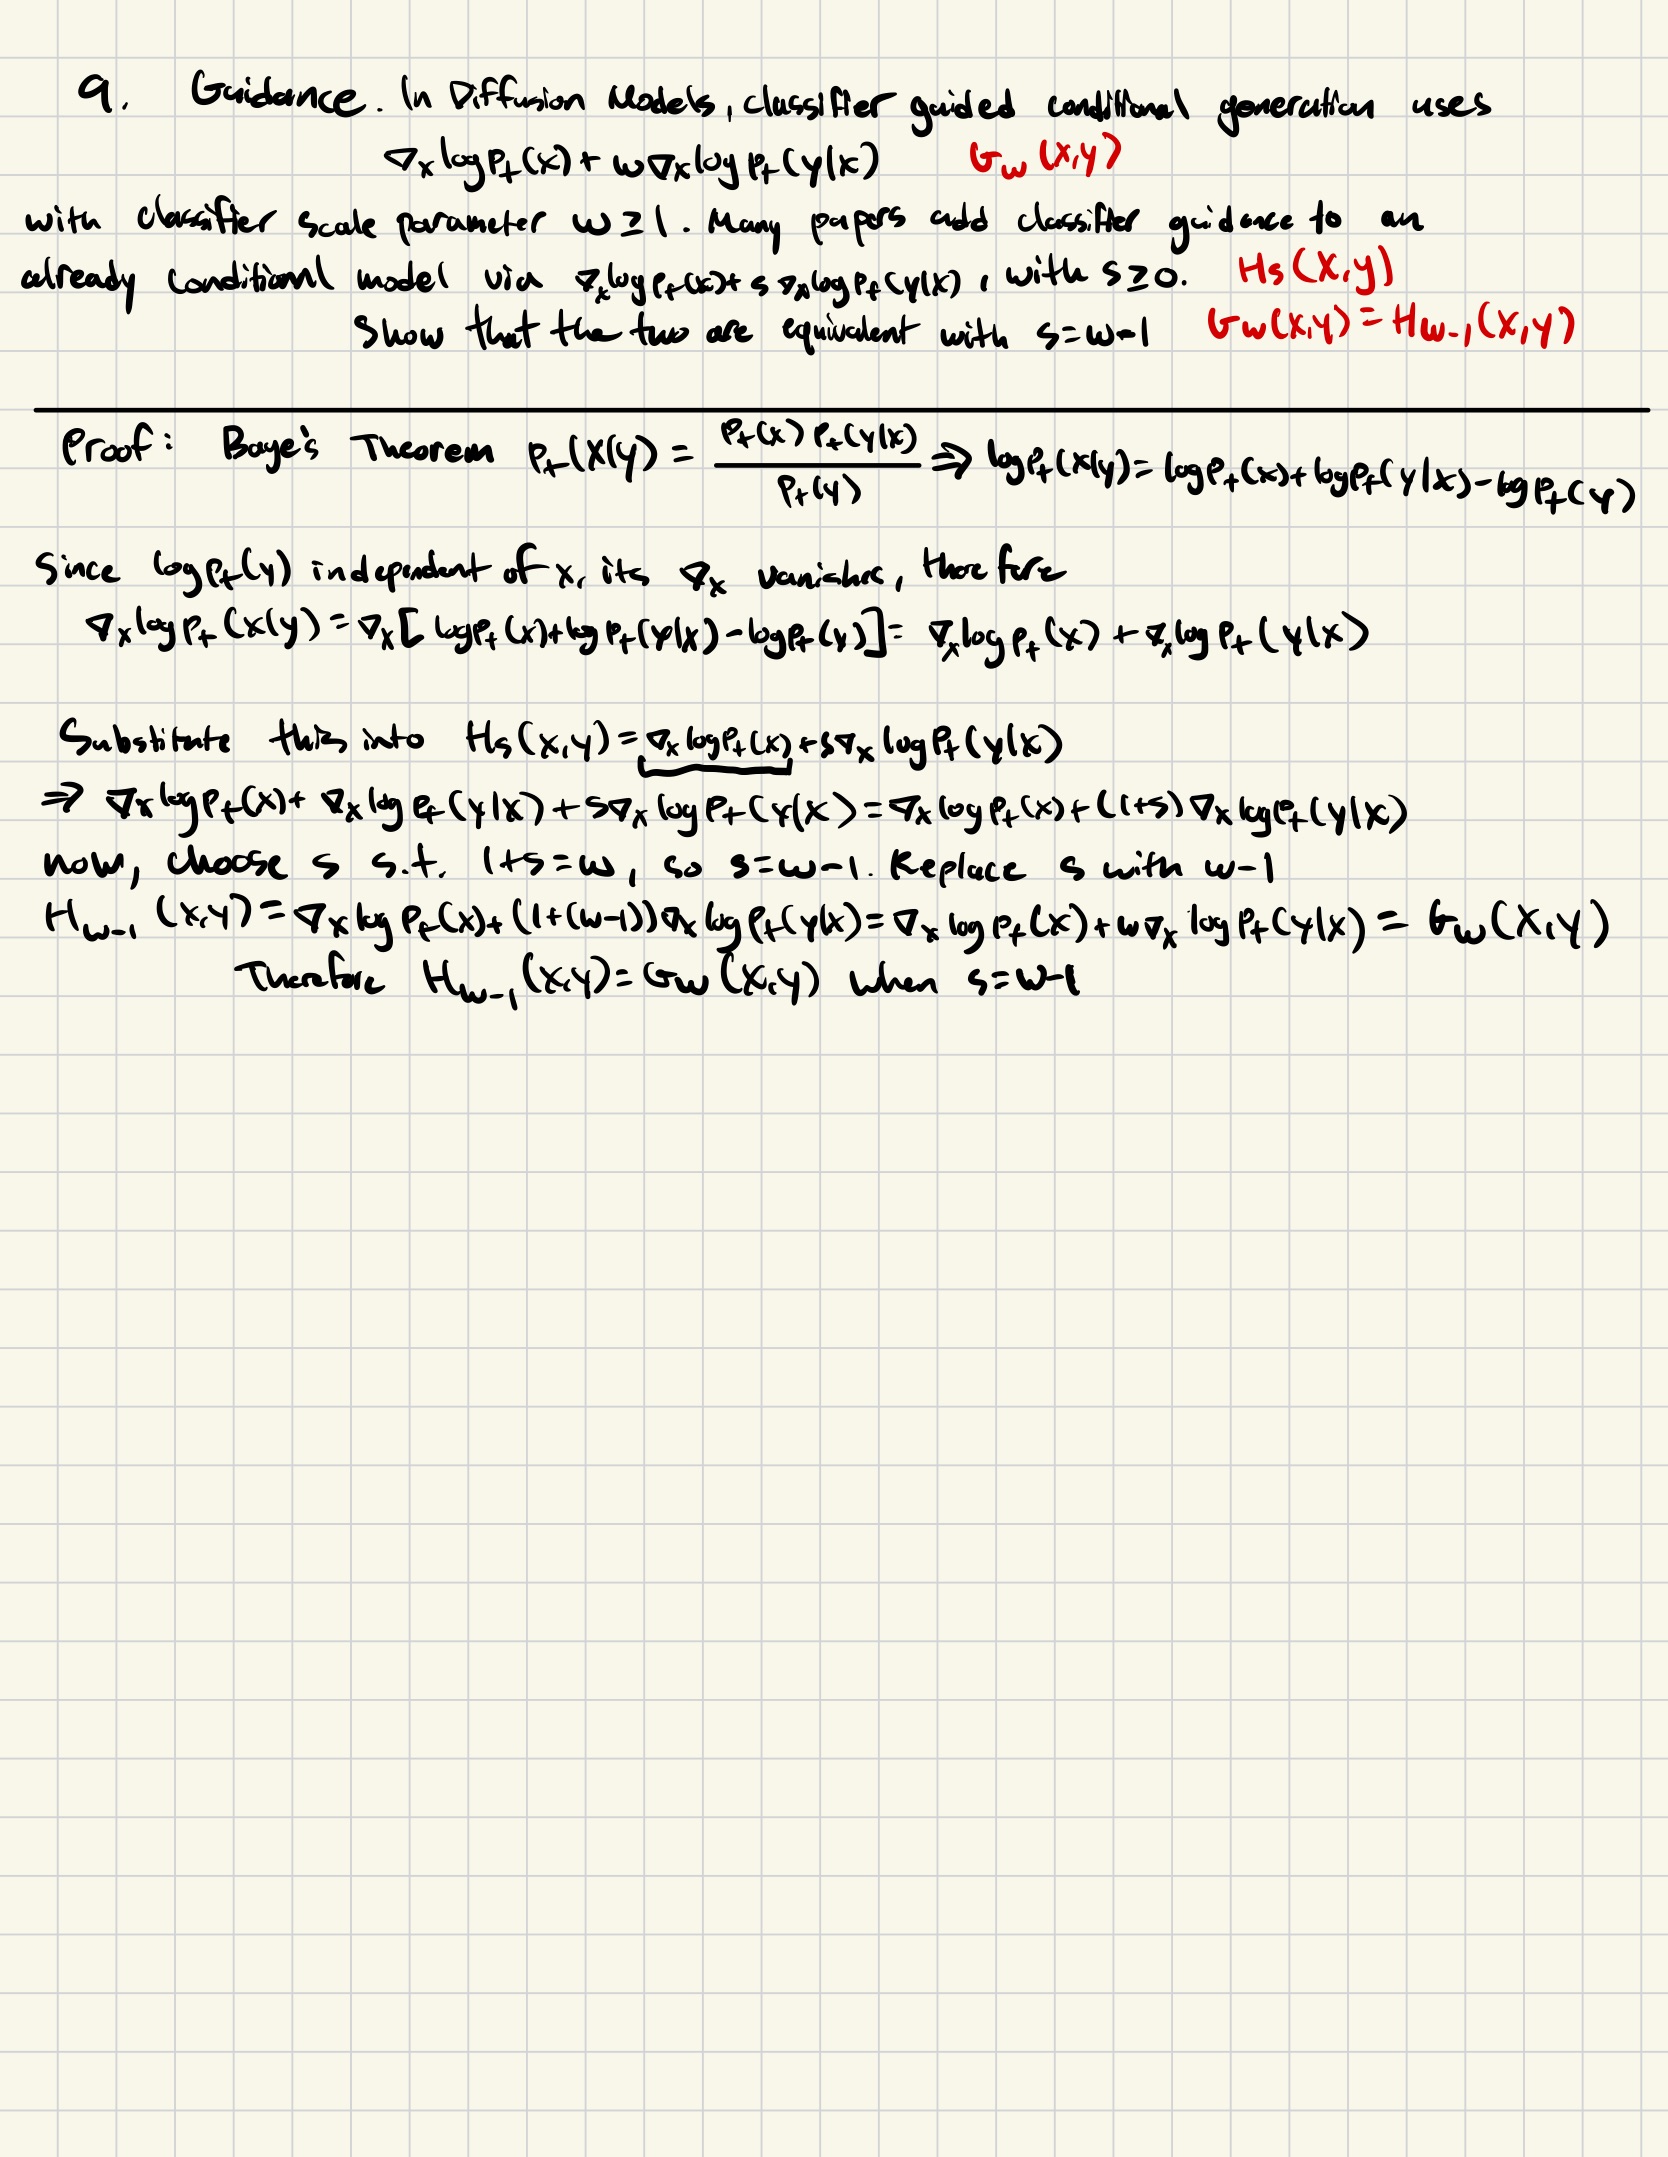 9. Guidance. In Diffusion Models, classifier guided conditional generation uses
∇ₓ log pₜ(x) + w∇ₓ log pₜ(y|x) G_w(x,y)
with classifier scale parameter w ≥ 1. Many papers add classifier guidance to an
already conditional model via ∇ₓ log pₜ(x) + s ∇ₓ log pₜ(y|x), with s ≥ 0. H_s(x,y)
Show that the two are equivalent with s = w-1 G_w(x,y) = H_{w-1}(x,y)
Proof: Baye's Theorem pₜ(x|y) = pₜ(x) pₜ(y|x) / pₜ(y) ⇒ log pₜ(x|y) = log pₜ(x) + log pₜ(y|x) - log pₜ(y)
Since log pₜ(y) independent of x, its ∇ₓ vanishes, therefore
∇ₓ log pₜ(x|y) = ∇ₓ[log pₜ(x) + log pₜ(y|x) - log pₜ(y)] = ∇ₓ log pₜ(x) + ∇ₓ log pₜ(y|x)
Substitute this into H_s(x,y) = ∇ₓ log pₜ(x) + s∇ₓ log pₜ(y|x)
⇒ ∇ₓ log pₜ(x) + ∇ₓ log pₜ(y|x) + s∇ₓ log pₜ(y|x) = ∇ₓ log pₜ(x) + (1+s) ∇ₓ log pₜ(y|x)
now, choose s s.t. 1+s = w, so s = w-1. Replace s with w-1
H_{w-1}(x,y) = ∇ₓ log pₜ(x) + (1+(w-1))∇ₓ log pₜ(y|x) = ∇ₓ log pₜ(x) + w∇ₓ log pₜ(y|x) = G_w(x,y)
Therefore H_{w-1}(x,y) = G_w(x,y) when s = w-1